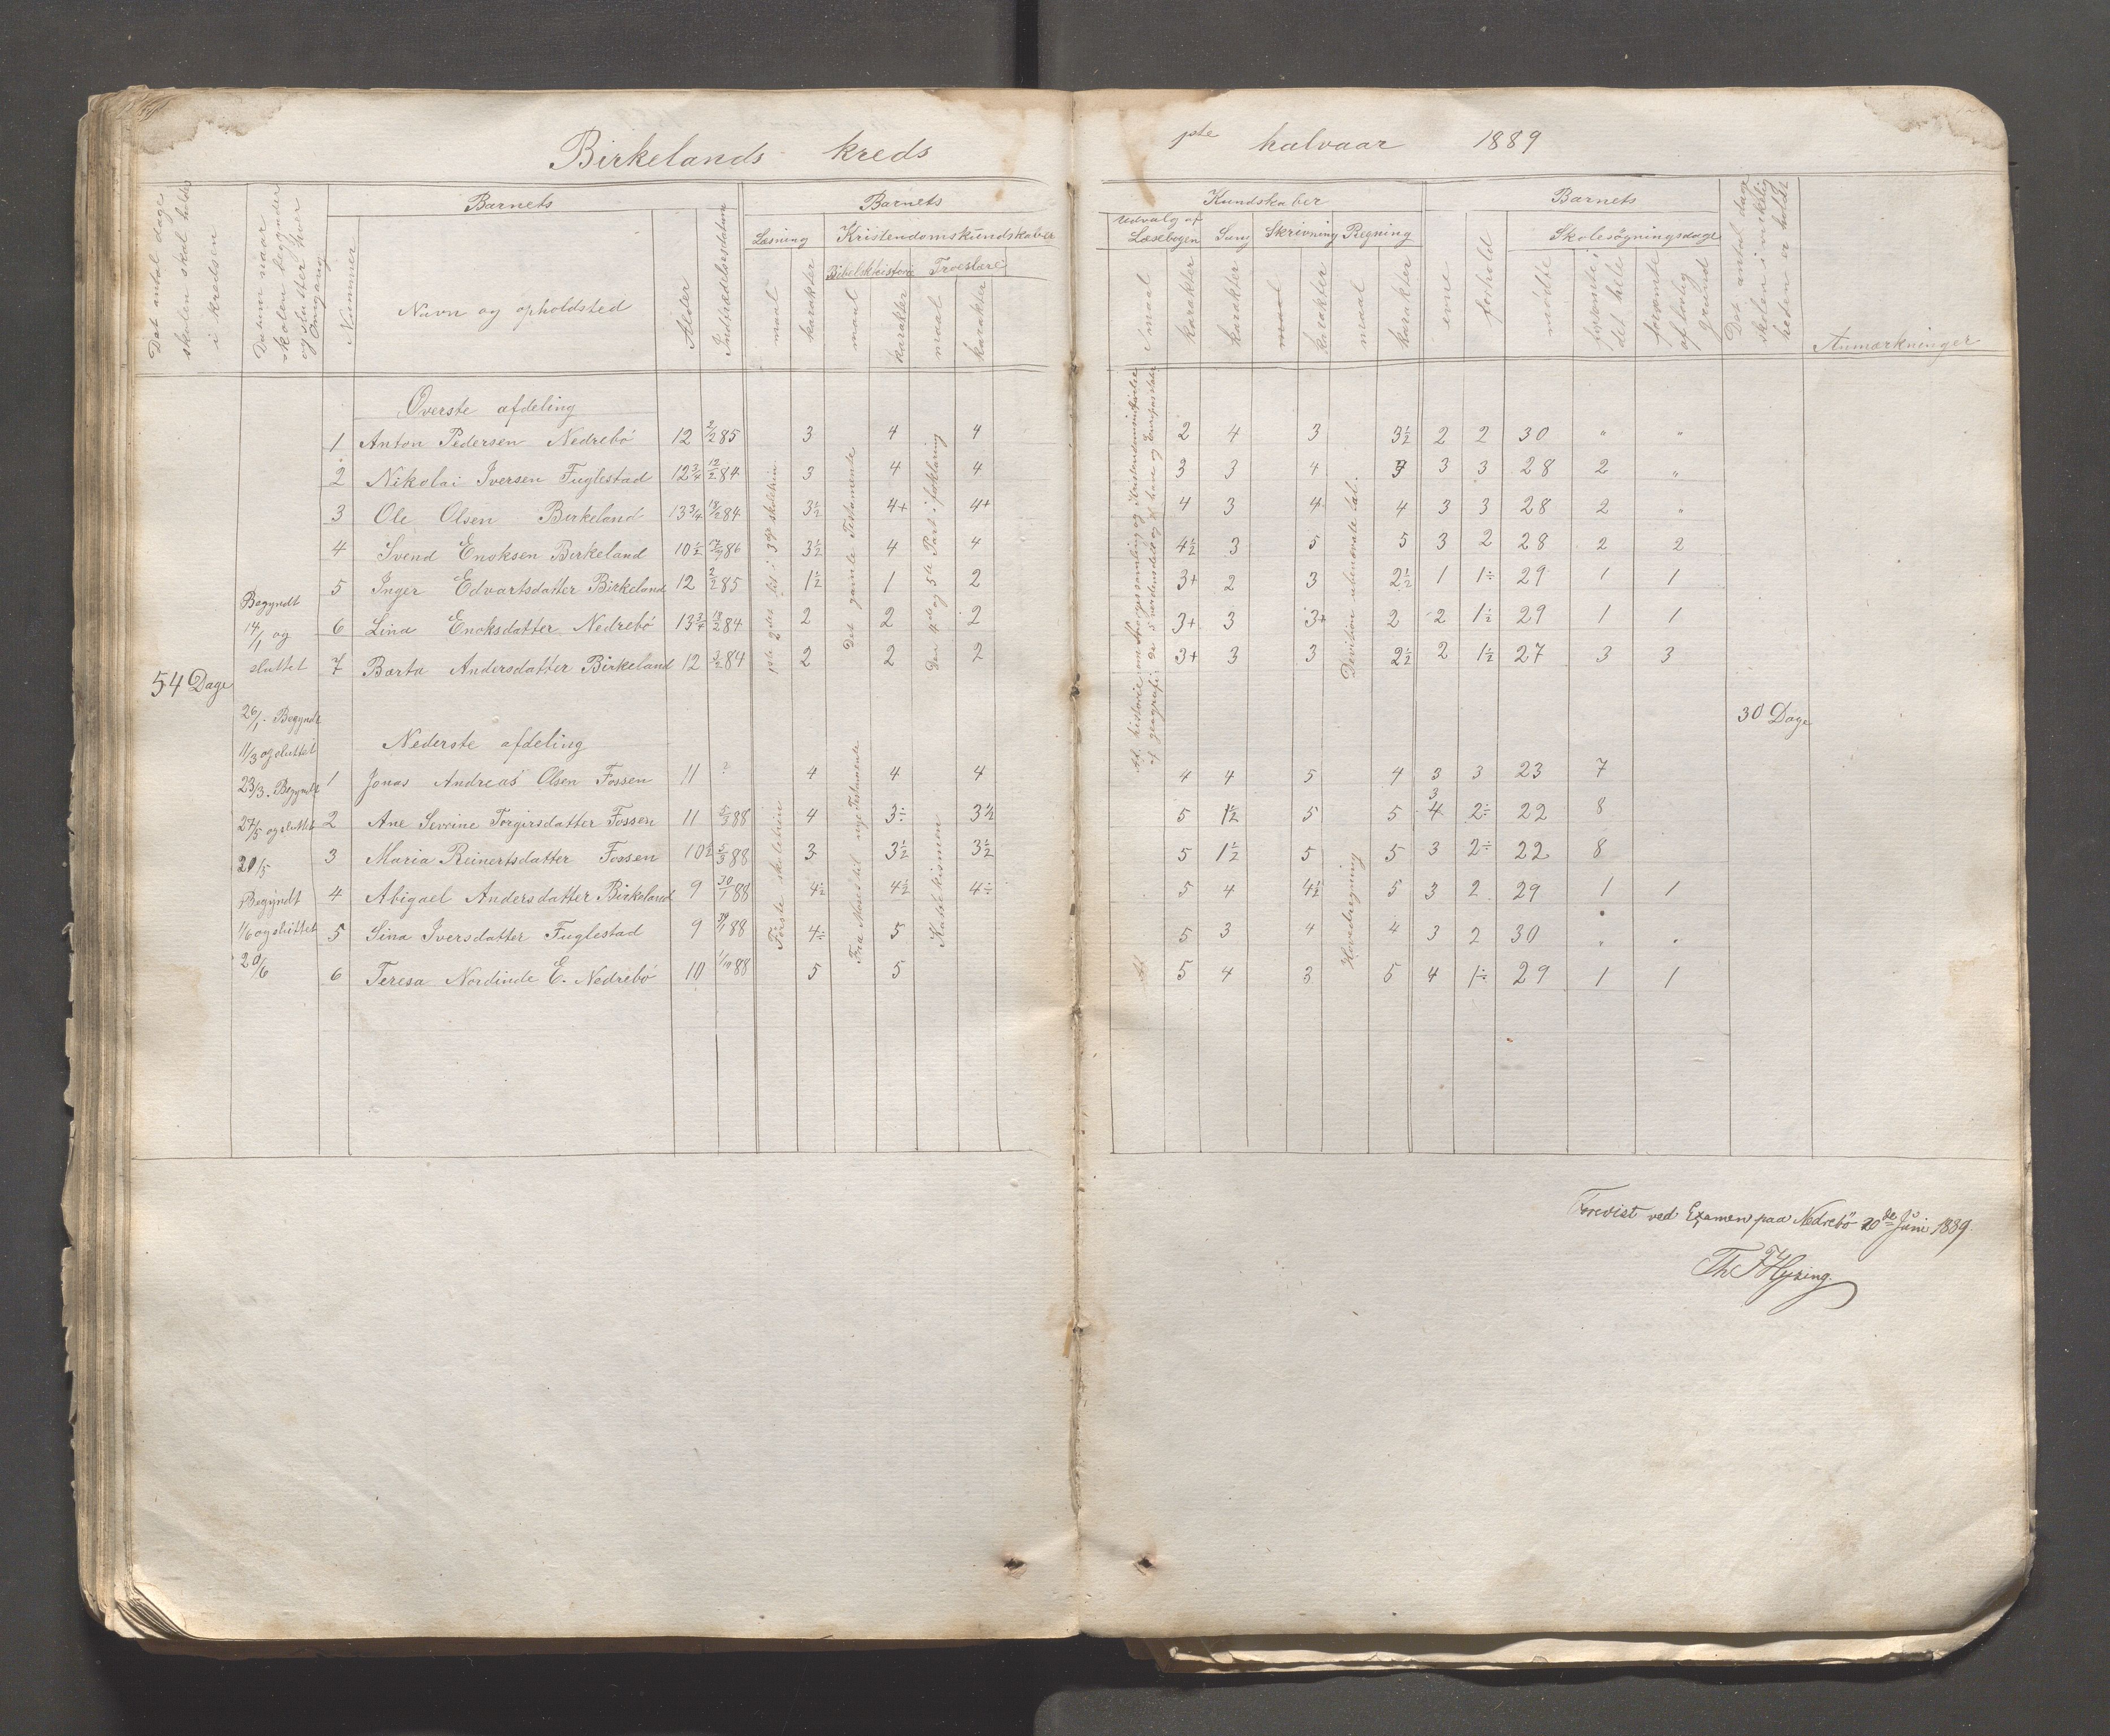 Birkelands kreds 1ste halvaar 1889
Det antal dage skolen skal holdes i kredsen
Datum naar skolen begynder og slutter hver Omgang
Barnets
Nummer
Navn og opholdsted
Alder
Indtrædelsesdatum
Barnets
Læsning
maal
karakter
Kristendomskundskaber
Bibelskhistorie
maal
karakter
Troeslære
maal
karakter
Kundskaber
Udvalg af Læsebogen
maal
karakter
Sang
karakter
Skrivning
maal
karakter
Regning
maal
karakter
Barnets
evne
forhold
Skolesøgningsdage
mødte
forsømte i det hele
forsømte af lovlig grund
Det antal dage skolen i virkelig heden er holdt
Anmærkninger
54 Dage
Begyndt
14/1 og
sluttet
26/1. Begyndt
11/3 og sluttet
23/3. Begyndt
27/5 og sluttet
/5
Begyndt
1/6 og sluttet
20/6
Øverste afdeling
1 Anton Pedersen Nedrebö 12 2/2 85 3 4 4 2 4 3 3½ 2 2 30 " "
2 Nikolai Iversen Fuglestad 12¾ 12/2 84 3 4 4 3 3 4 3 3 28 2 "
3 Ole Olsen Birkeland 13¾ 18/2 84 3½ 4+ 4+ 4 3 4 4 3 3 28 2 "
4 Svend Enoksen Birkeland 10½ 86 3½ 4 4 4½ 3 5 5 3 2 28 2 2
5 Inger Edvartsdatter Birkeland 12 2/2 85 1½ 1 2 3+ 2 3 2½ 1 1÷ 29 1 1
6 Lina Enoksdatter Nedrebö 13¾ 18/2 84 2 2 2 3+ 3 3+ 2 2 1½ 29 1 1
7 Barta Andersdatter Birkeland 12 3/2 84 2 2 2 3+ 3 3 2½ 2 1½ 27 3 3
Det gamle Testamente
Den 4de og 5te Part i foklaring
Devition ubenævnte tal.
30 Dage
Nederste afdeling
1 Jonas Andreas Olsen Fossen 11 ? 4 4 4 4 4 5 4 3 3 23 7
2 Ane Sevrine Torgirsdatter Fossen 11 5/3 88 4 3÷ 3½ 5 1½ 5 5 3 4 2÷ 22 8
3 Maria Reinertsdatter Fossen 10½ 5/3 88 3 3½ 3½ 5 1½ 5 5 3 2÷ 22 8
4 Abigael Andersdatter Birkeland 9 30/1 88 4½ 4½ 4÷ 5 4 4½ 5 3 2 29 1 1
5 Sina Iversdatter Fuglestad 9 88 4÷ 5 5 3 4 4 3 2 30 " "
6 Teresa Nordinde E. Nedrebö 10 1/10 88 5 5 5 4 3 5 4 1÷ 29 1 1
Förste skoletrin
Fra Moses til nye Testamente
Katekismen
Hovedregning
Forevist ved Examen paa Nedrebö 20de Juni 1889.
Th F Hysing.